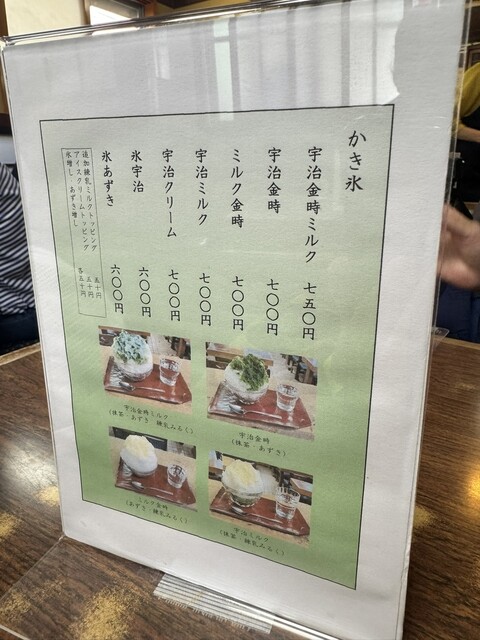 かき氷
宇治金時ミルク 七五〇円
宇治金時 七〇〇円
ミルク金時 七〇〇円
宇治ミルク 七〇〇円
宇治クリーム 七〇〇円
氷宇治 六〇〇円
氷あずき 六〇〇円
追加練乳ミルクトッピング 五十円
アイスクリームトッピング 五十円
氷増し・あずき増し 各五十円
宇治金時ミルク
(抹茶・あずき・練乳みるく)
宇治金時
(抹茶・あずき)
ミルク金時
(あずき・練乳みるく)
宇治ミルク
(抹茶・練乳みるく)